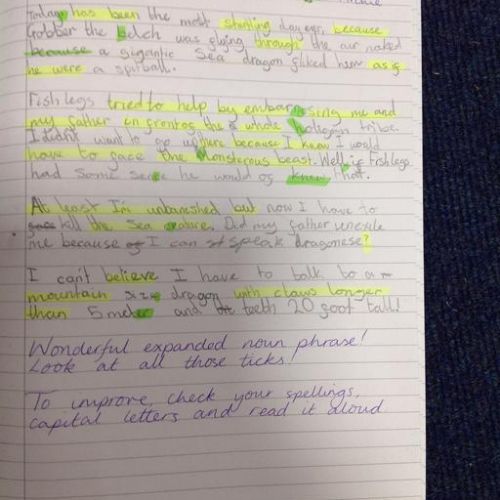 Today has been the most startling day ever, because
Gobber the Belch was flying through the air naked
because a gigantic Sea dragon fliked him as if
he were a spitball.
Fishlegs tried to help by embarrasing me and
my father in front of the whole hooligan tribe.
I didn't want to go up there because I know I would
have to face the Monsterous beast. Well if Fishlegs
had some sence he would of knew that.
At least I'm unbanished but now I have to
kill the Sea
me because I can speak dragonese?
I can't believe I have to talk to a
mountain size dragon with claws longer
than 5 meter and teeth 20 foot tall!
Wonderful expanded noun phrase!
Look at all those ticks!
To improve, check your spellings,
capital letters and read it aloud